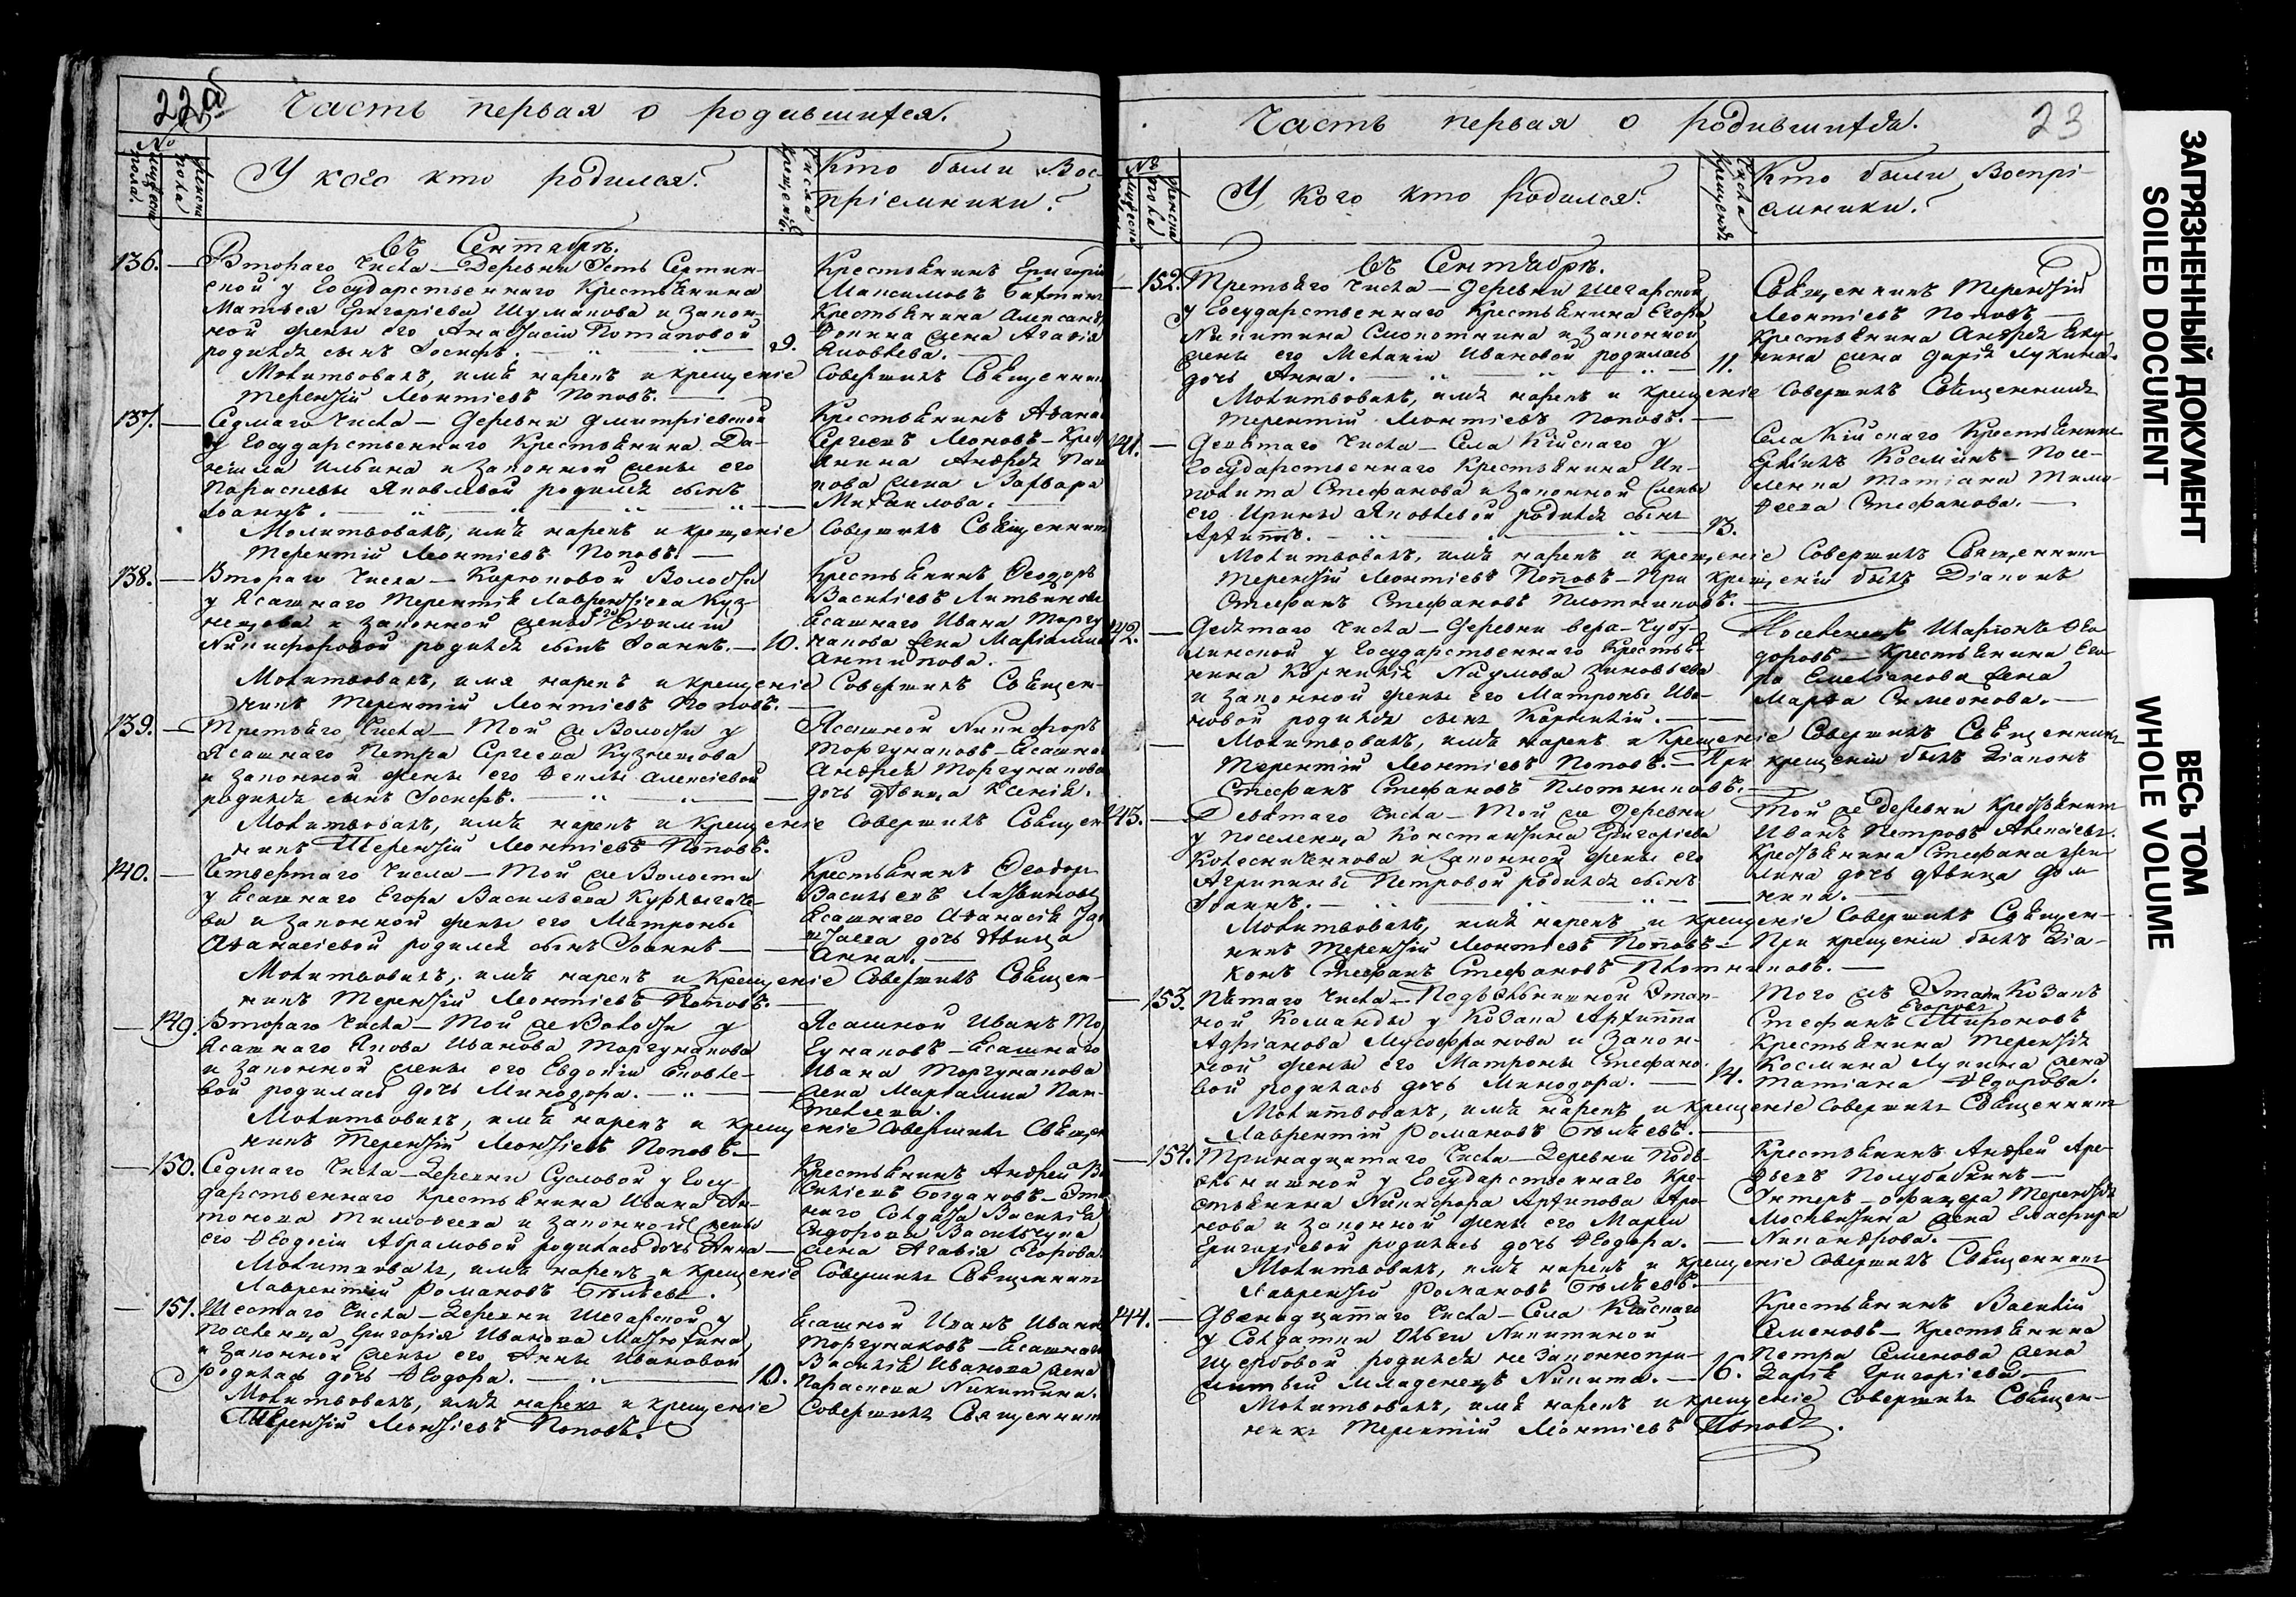 22об
Часть первая о родившихся.
№
мужеска пола.
женска пола
У кого кто родился?
Числа крещенія.
Кто были Вос-
пріемники?
въ Сентябрѣ.
136. — Втораго числа — Деревни Усть Сертин-
ской у Государственнаго Крестьянина
Матвея Григорьева Шуманова и закон-
ной жены его Анастасіи Потаповой
родился сынъ Іосифъ. — 9.
Крестьянинъ Григорій
Максимовъ
Крестьянина
жена Агафія
Яковлева.
Молитвовалъ, имя нарекъ и крещеніе Совершилъ Священникъ
Терентій Леонтіевъ Поповъ. —
137. — Седмаго числа — Деревни Дмитріевской
у Государственнаго Крестьянина Да-
ніила Ильина и законной жены его
Параскевы Яковлевой родился сынъ
Іоаннъ. —
Крестьянинъ
Сергеевъ Леоновъ —
Андрея
жена Варвара
Михаилова.
Молитвовалъ, имя нарекъ и крещеніе Совершилъ Священникъ
Терентій Леонтіевъ Поповъ. —
138. — Втораго числа — Каргоповой Волости
у Ясашнаго Терентія Лаврентіева Куз-
нецова и законной жены его Евфиміи
Никифоровой родился сынъ Іоаннъ. — 10.
Крестьянинъ Феодоръ
Васильевъ Литвиновъ
Ясашнаго Ивана
жена
Антипова. —
Молитвовалъ, имя нарекъ и крещеніе Совершилъ Священ-
никъ Терентій Леонтіевъ Поповъ. —
139. — Третьяго числа — Той же Волости у
Ясашнаго Петра Сергеева Кузнецова
и законной жены его Феклы Алексіевой
родился сынъ Іосифъ. —
Ясашной Никифоръ
Торгунаковъ —
Андрея Торгунакова
дочь девица Ксенія.
Молитвовалъ, имя нарекъ и крещеніе Совершилъ Священ-
никъ Терентій Леонтіевъ Поповъ.
140. — Четвертаго числа — Той же Волости
у Ясашнаго Егора Васильева
и законной жены его Матроны
Афанасіевой родился сынъ Іоаннъ —
Крестьянинъ Феодоръ
Васильевъ Литвиновъ
Ясашнаго Афанасія
дочь девица
Анна. —
Молитвовалъ, имя нарекъ и крещеніе Совершилъ Священ-
никъ Терентій Леонтіевъ Поповъ.
— 149. Втораго числа — Той же Волости у
Ясашнаго Якова Иванова Торгунакова
и законной жены его Евдокіи Яковле-
вой родилась дочь Минодора. —
Ясашной Иванъ Тор
гунаковъ — Ясашнаго
Ивана Торгунакова
жена Пан-
телеева.
Молитвовалъ, имя нарекъ и крещеніе Совершилъ Священ
никъ Терентій Леонтіевъ Поповъ —
— 150. Седмаго числа — Деревни Сусловой у Госу-
дарственнаго Крестьянина Ивана Ан-
тонова Тимофеева и законной жены
его Феодосіи Абрамовой родилась дочь Анна —
Крестьянинъ Андрей Ва
силіевъ Богдановъ —
Солдата Василія
жена Агафія Егорова.
Молитвовалъ, имя нарекъ и крещеніе Совершилъ Священникъ
Лаврентій Романовъ Бѣляевъ.
— 151. Шестаго числа — Деревни Шегарской у
Поселенца Григорія Иванова
и законной жены его Анны Ивановой
родилась дочь Феодора. — 10.
Ясашной Иванъ Ивановъ
Торгунаковъ — Ясашнаго
Василія Иванова жена
Параскева Никитина.
Молитвовалъ, имя нарекъ и крещеніе Совершилъ Священникъ
Терентій Леонтіевъ Поповъ.
Часть первая о родившихся. 23
№
мужеска
женска пола
У кого кто родился?
Числа крещенія
Кто были Воспрі-
емники?
въ Сентябрѣ.
— 152. Третьяго числа — Деревни Шегарской
у Государственнаго Крестьянина Егора
Никитина и законной
жены его Меланіи Ивановой родилась
дочь Анна. — 11.
Священникъ Терентій
Леонтіевъ Поповъ —
Крестьянина Андрея
жена Дарія Лукина.
Молитвовалъ, имя нарекъ и крещеніе Совершилъ Священникъ
Терентій Леонтіевъ Поповъ. —
141. — Девятаго числа — Села Кійскаго у
Государственнаго Крестьянина Ип-
полита Стефанова и законной жены
его Ирины Яковлевой родился сынъ
Архиппъ. — 13.
Села Кійскаго Крестьянинъ
Косминъ — Посе-
ленца Татіана Тимо-
феева Стефанова. —
Молитвовалъ, имя нарекъ и крещеніе Совершилъ Священникъ
Терентій Леонтіевъ Поповъ — При крещеніи былъ Діаконъ
Стефанъ Стефановъ Плотниковъ. —
142. — Девятаго числа — Деревни
у Государственнаго Крестья-
нина Корнилія Наумова Зиновьева
и законной жены его Матроны Ива-
новой родился сынъ Корнилій. —
Поселенецъ Иларіонъ Фео
доровъ — Крестьянина Его-
ра Емельянова жена
Марфа Симеонова. —
— Молитвовалъ, имя нарекъ и Крещеніе Совершилъ Священникъ
Терентій Леонтіевъ Поповъ. — При крещеніи былъ Діаконъ
Стефанъ Стефановъ Плотниковъ. —
143. — Девятаго числа — Той же Деревни
у поселенца Константина Григоріева
Колесниченкова и законной жены его
Агрипины Петровой родился сынъ
Іоаннъ. —
Той же деревни Крестьянинъ
Иванъ Петровъ Алексіевъ.
Крестьянина Стефана
дочь девица Дом
ника. —
Молитвовалъ, имя нарекъ и крещеніе Совершилъ Священ-
никъ Терентій Леонтіевъ Поповъ — При крещеніи былъ Діа-
конъ Стефанъ Стефановъ Плотниковъ. —
— 153. Пятаго числа — Подъельнишной Этап-
ной Команды у Козака Архиппа
Адріанова и закон-
ной жены его Матроны Стефано-
вой родилась дочь Минодора. — 14.
Того жъ Этапа Козакъ
Егоровъ
Стефанъ Мироновъ
Крестьянина Терентія
Космина Лукина жена
Татіана Федорова.
Молитвовалъ, имя нарекъ и крещеніе Совершилъ Священникъ
Лаврентій Романовъ Бѣляевъ. —
— 154. Тринадцатаго числа — Деревни Подъ-
ельнишной у Государственнаго Кре-
стьянина Никифора Архипова
и законной жены его Маріи
Григоріевой родилась дочь Феодора. —
Крестьянинъ Андрей Аре-
фьевъ Полубабкинъ —
Унтеръ-офицера Терентія
Москвитина жена Гликерія
Никанорова. —
Молитвовалъ, имя нарекъ и крещеніе Совершилъ Священникъ
Лаврентій Романовъ Бѣляевъ.
144. — Двенадцатаго числа — Села Кійскаго
у Солдатки Ольги Никитиной
Щербовой родился не законнопри-
житый младенецъ Никита. — 16.
Крестьянинъ Василій
Семеновъ — Крестьянина
Петра Семенова жена
Дарія Григоріева. —
Молитвовалъ, имя нарекъ и крещеніе Совершилъ Священ-
никъ Терентій Леонтіевъ Поповъ.
ЗАГРЯЗНЕННЫЙ ДОКУМЕНТ
SOILED DOCUMENT
ВЕСЬ ТОМ
WHOLE VOLUME